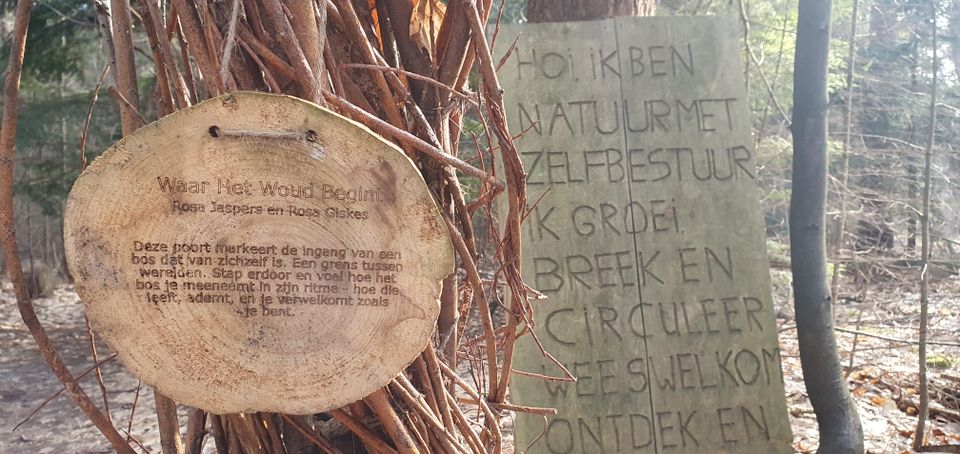 Waar Het Woud Begint
Rosa Jaspers en Rosa Giskes
Deze poort markeert de ingang van een
bos dat van zichzelf is. Een grens tussen
werelden. Stap erdoor en voel hoe het
bos je meeneemt in zijn ritme - hoe die
leeft, ademt, en je verwelkomt zoals
je bent.
HOI. IK BEN
NATUUR MET
ZELFBESTUUR
IK GROEI.
BREEK EN
CIRCULEER
WEES WELKOM
ONTDEK EN